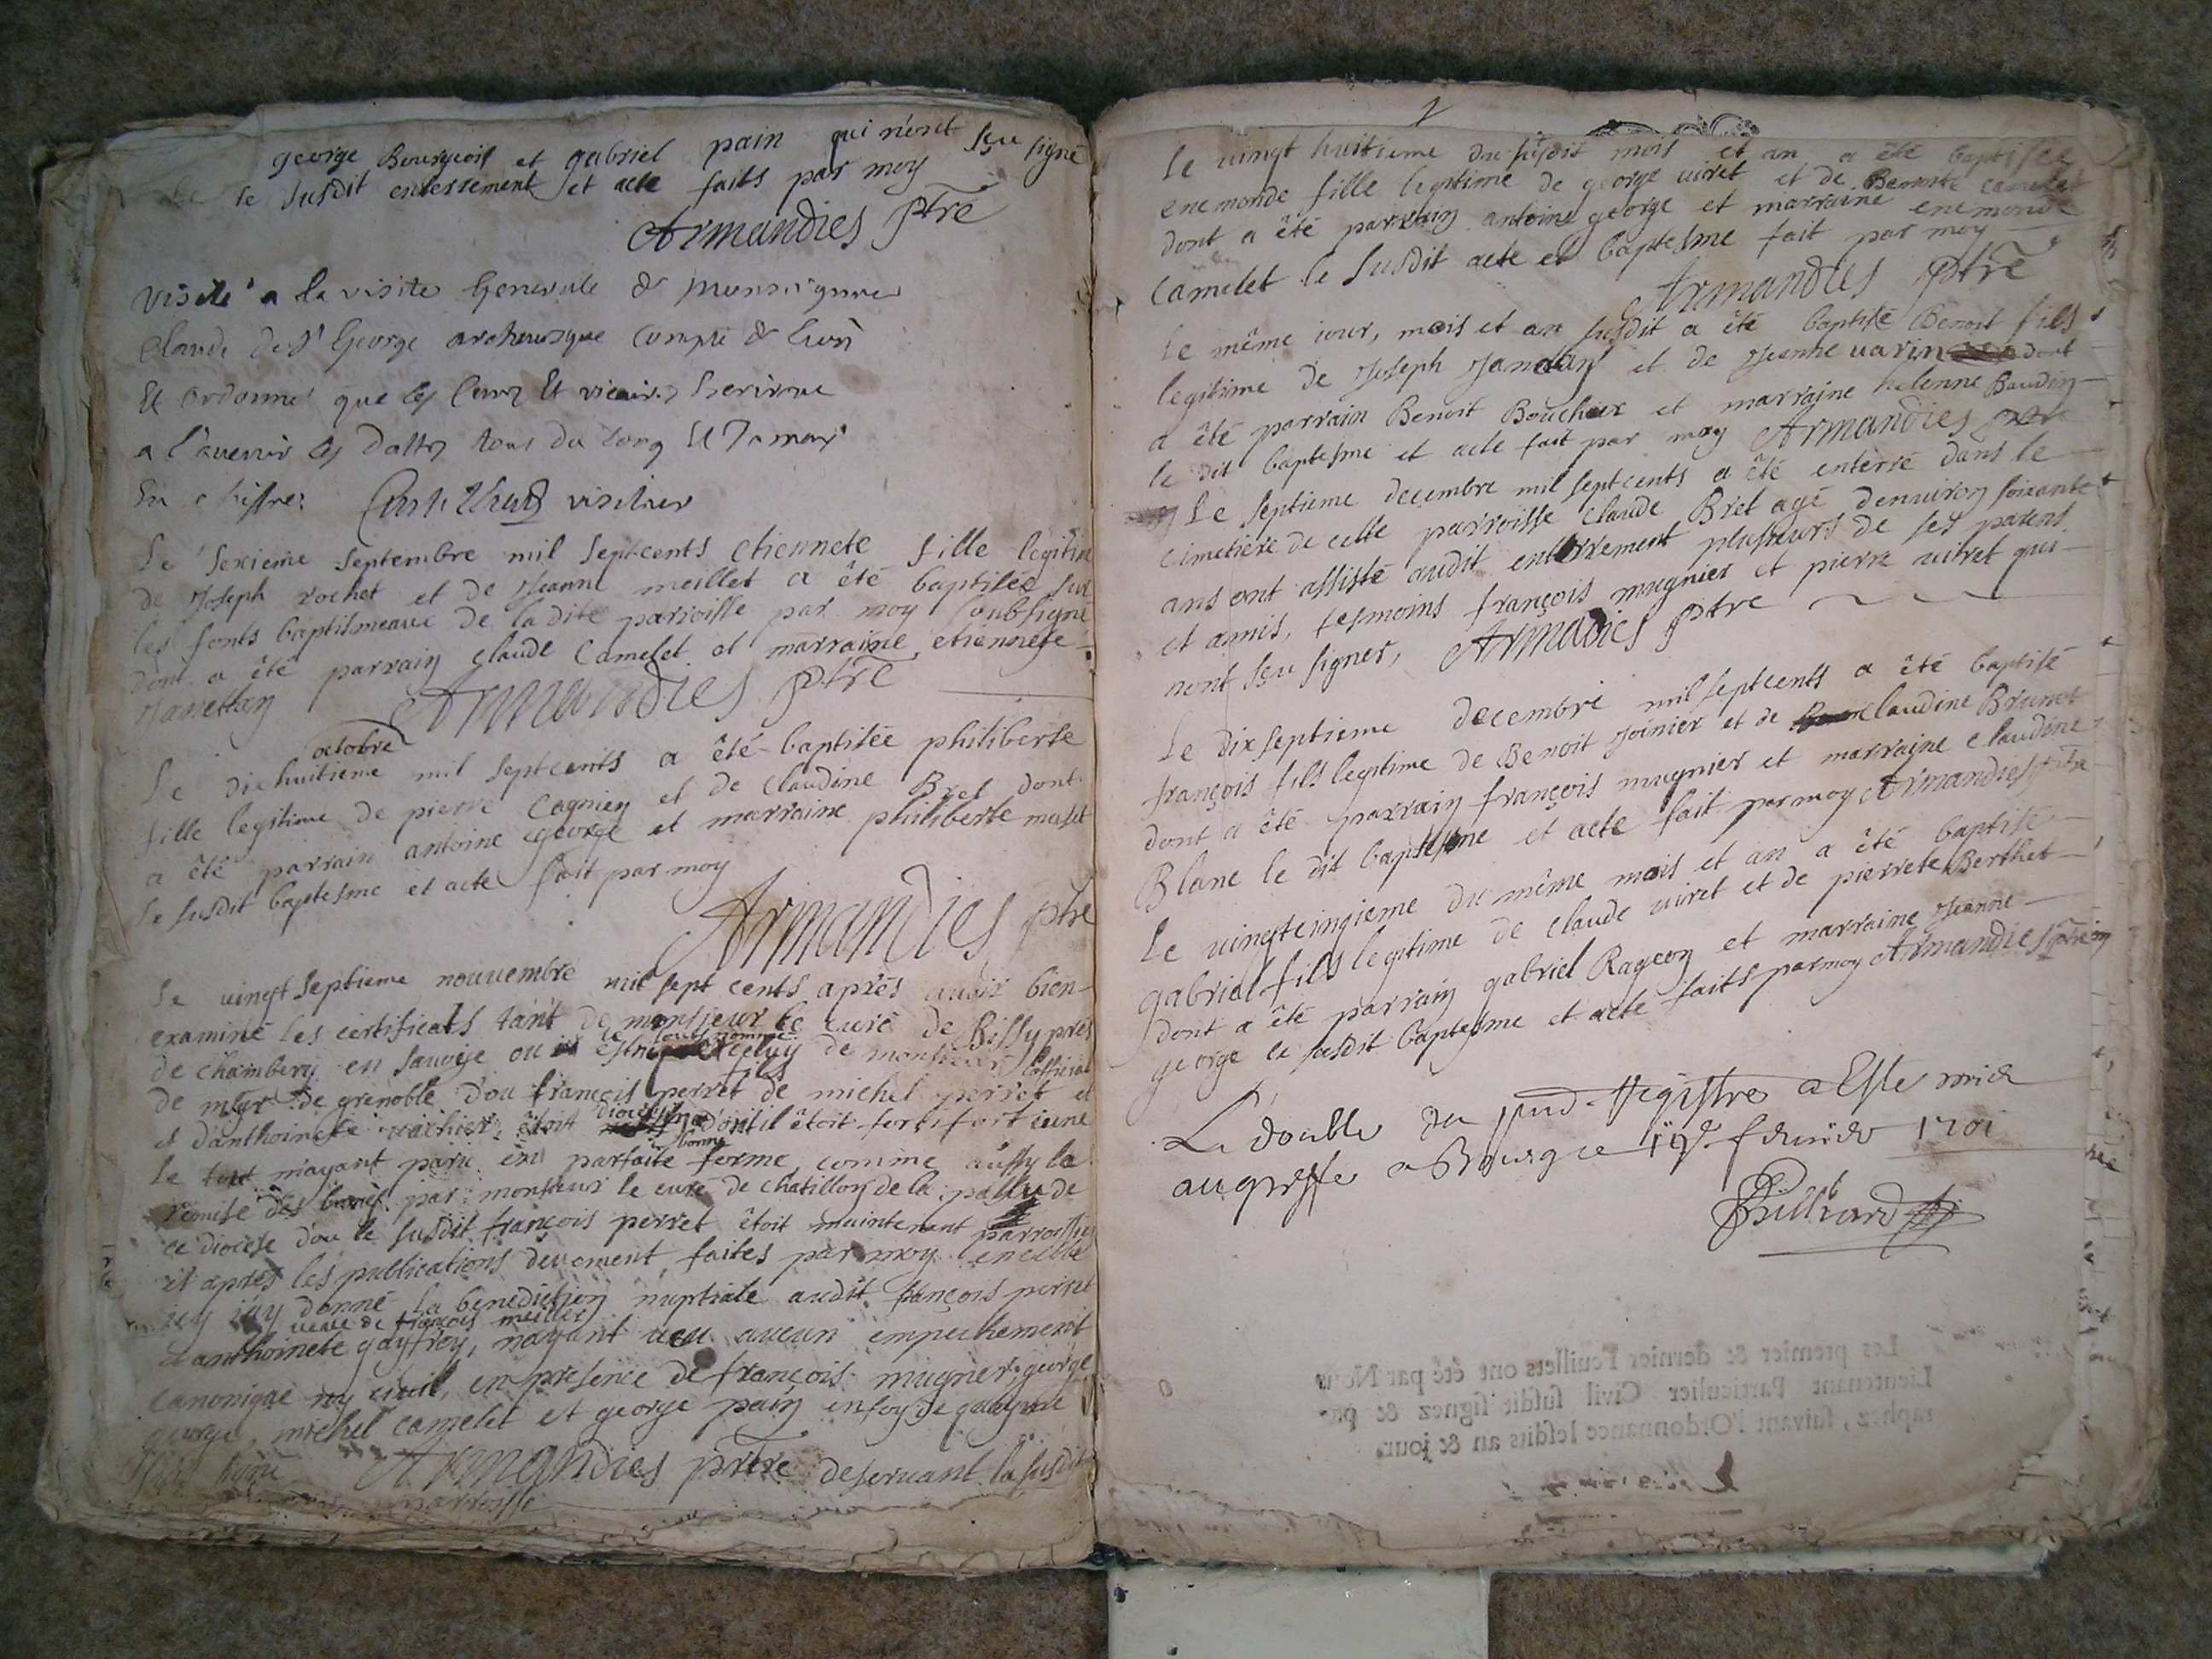 george Bourgeois et gabriel pain qui n'ont sçu signé
le susdit enterrement et acte faits par moy
Armandies ptre
visité a la visite generale de monseigneur
Claude de st George archevesque compte de Lion
Et ordonné que les Curez Et vicaires
a l'avenir les dattes tout du long Et Jamais
En chiffre visiteur
Le sexieme septembre mil septcents etiennete fille legitime
de Joseph rochet et de Jeanne meillet a été baptisée sur
les fonts baptismeaux de la dite parroisse par moy soubsigné
dont a été parrain claude Camelet et marraine etiennete
Armandies ptre
octobre
Le dixhuitieme mil septcents a été baptisée philiberte
fille legitime de pierre Cagnien et de claudine Bret dont
a été parrain antoine george et marraine philiberte
le susdit baptesme et acte fait par moy
Armandies ptre
Le vingtseptieme nouvembre mil sept cents après avoir bien
examiné les certificats tant de monsieur le curé de Bissy près
de chambery en savoye ou est celuy de monsieur l'official
de mgr de grenoble d'ou françois perret fils de michel perret et
et d'anthoinete etoit diocesain d'ont il étoit sorti fort jeune
le tout m'ayant paru en parfaite bonne forme comme aussy la
remise des par monsieur le curé de chatillon de la pallu de
ce diocese d'ou le susdit françois perret étoit maintenant parroissien
et après les publications deuement faites par moy
j'ay donné la benediction nuptiale audit françois perret
veuve de françois meillet
et anthoinete gayfrey, n'ayant veu aucun empeschement
canonique ny civil, en presence de françois mugnier, george
george, michel camelet et george pain enfoy de quoy
signé Armandies prtre deservant la susdite
parroisse
Le vingt huitieme du susdit mois et an a été baptisée
enemonde fille legitime de george viret et de Benoite camelet
dont a été parrain antoine george et marraine enemonde
Camelet le susdit acte et baptesme fait par moy
Armandies ptre
Le même jour, mois et an susdit a été baptisé Benoit fils
legitime de Joseph et de Jeanne varin dont
a été parrain Benoit Boucheux et marraine helenne Baudin
le dit baptesme et acte fait par moy Armandies ptre
Le septieme decembre mil septcents a été enterré dans le
cimetiere de cette parroisse claude Bret agé denviron soixante
ans ont assisté audit enterrement plusieurs de ses parens
et amis, tesmoins françois mugnier et pierre viret qui
nont sçu signer, Armadies ptre
Le dixseptieme decembre mil septcents a été baptisé
françois fils legitime de Benoit Joinier et de claudine Brunet
dont a été parrain françois mugnier et marraine claudine
Blanc le dit baptesme et acte fait par moy Armandies ptre
Le vingtcinqieme du même mois et an a été baptisé
gabriel fils legitime de claude viret et de pierrete Berthet
dont a été parrain gabriel Rageon et marraine Jeanne
george le susdit baptesme et acte faits par moy Armandies
Le double du pnd Registre a Esté mis
au greffe a Bourg ce 19e febvrier 1701
Les premier & dernier Feuillets ont été par Nous
Lieutenant Particulier Civil susdit signez & pa-
raphez, suivant l'Ordonnance lesdits an & jour.